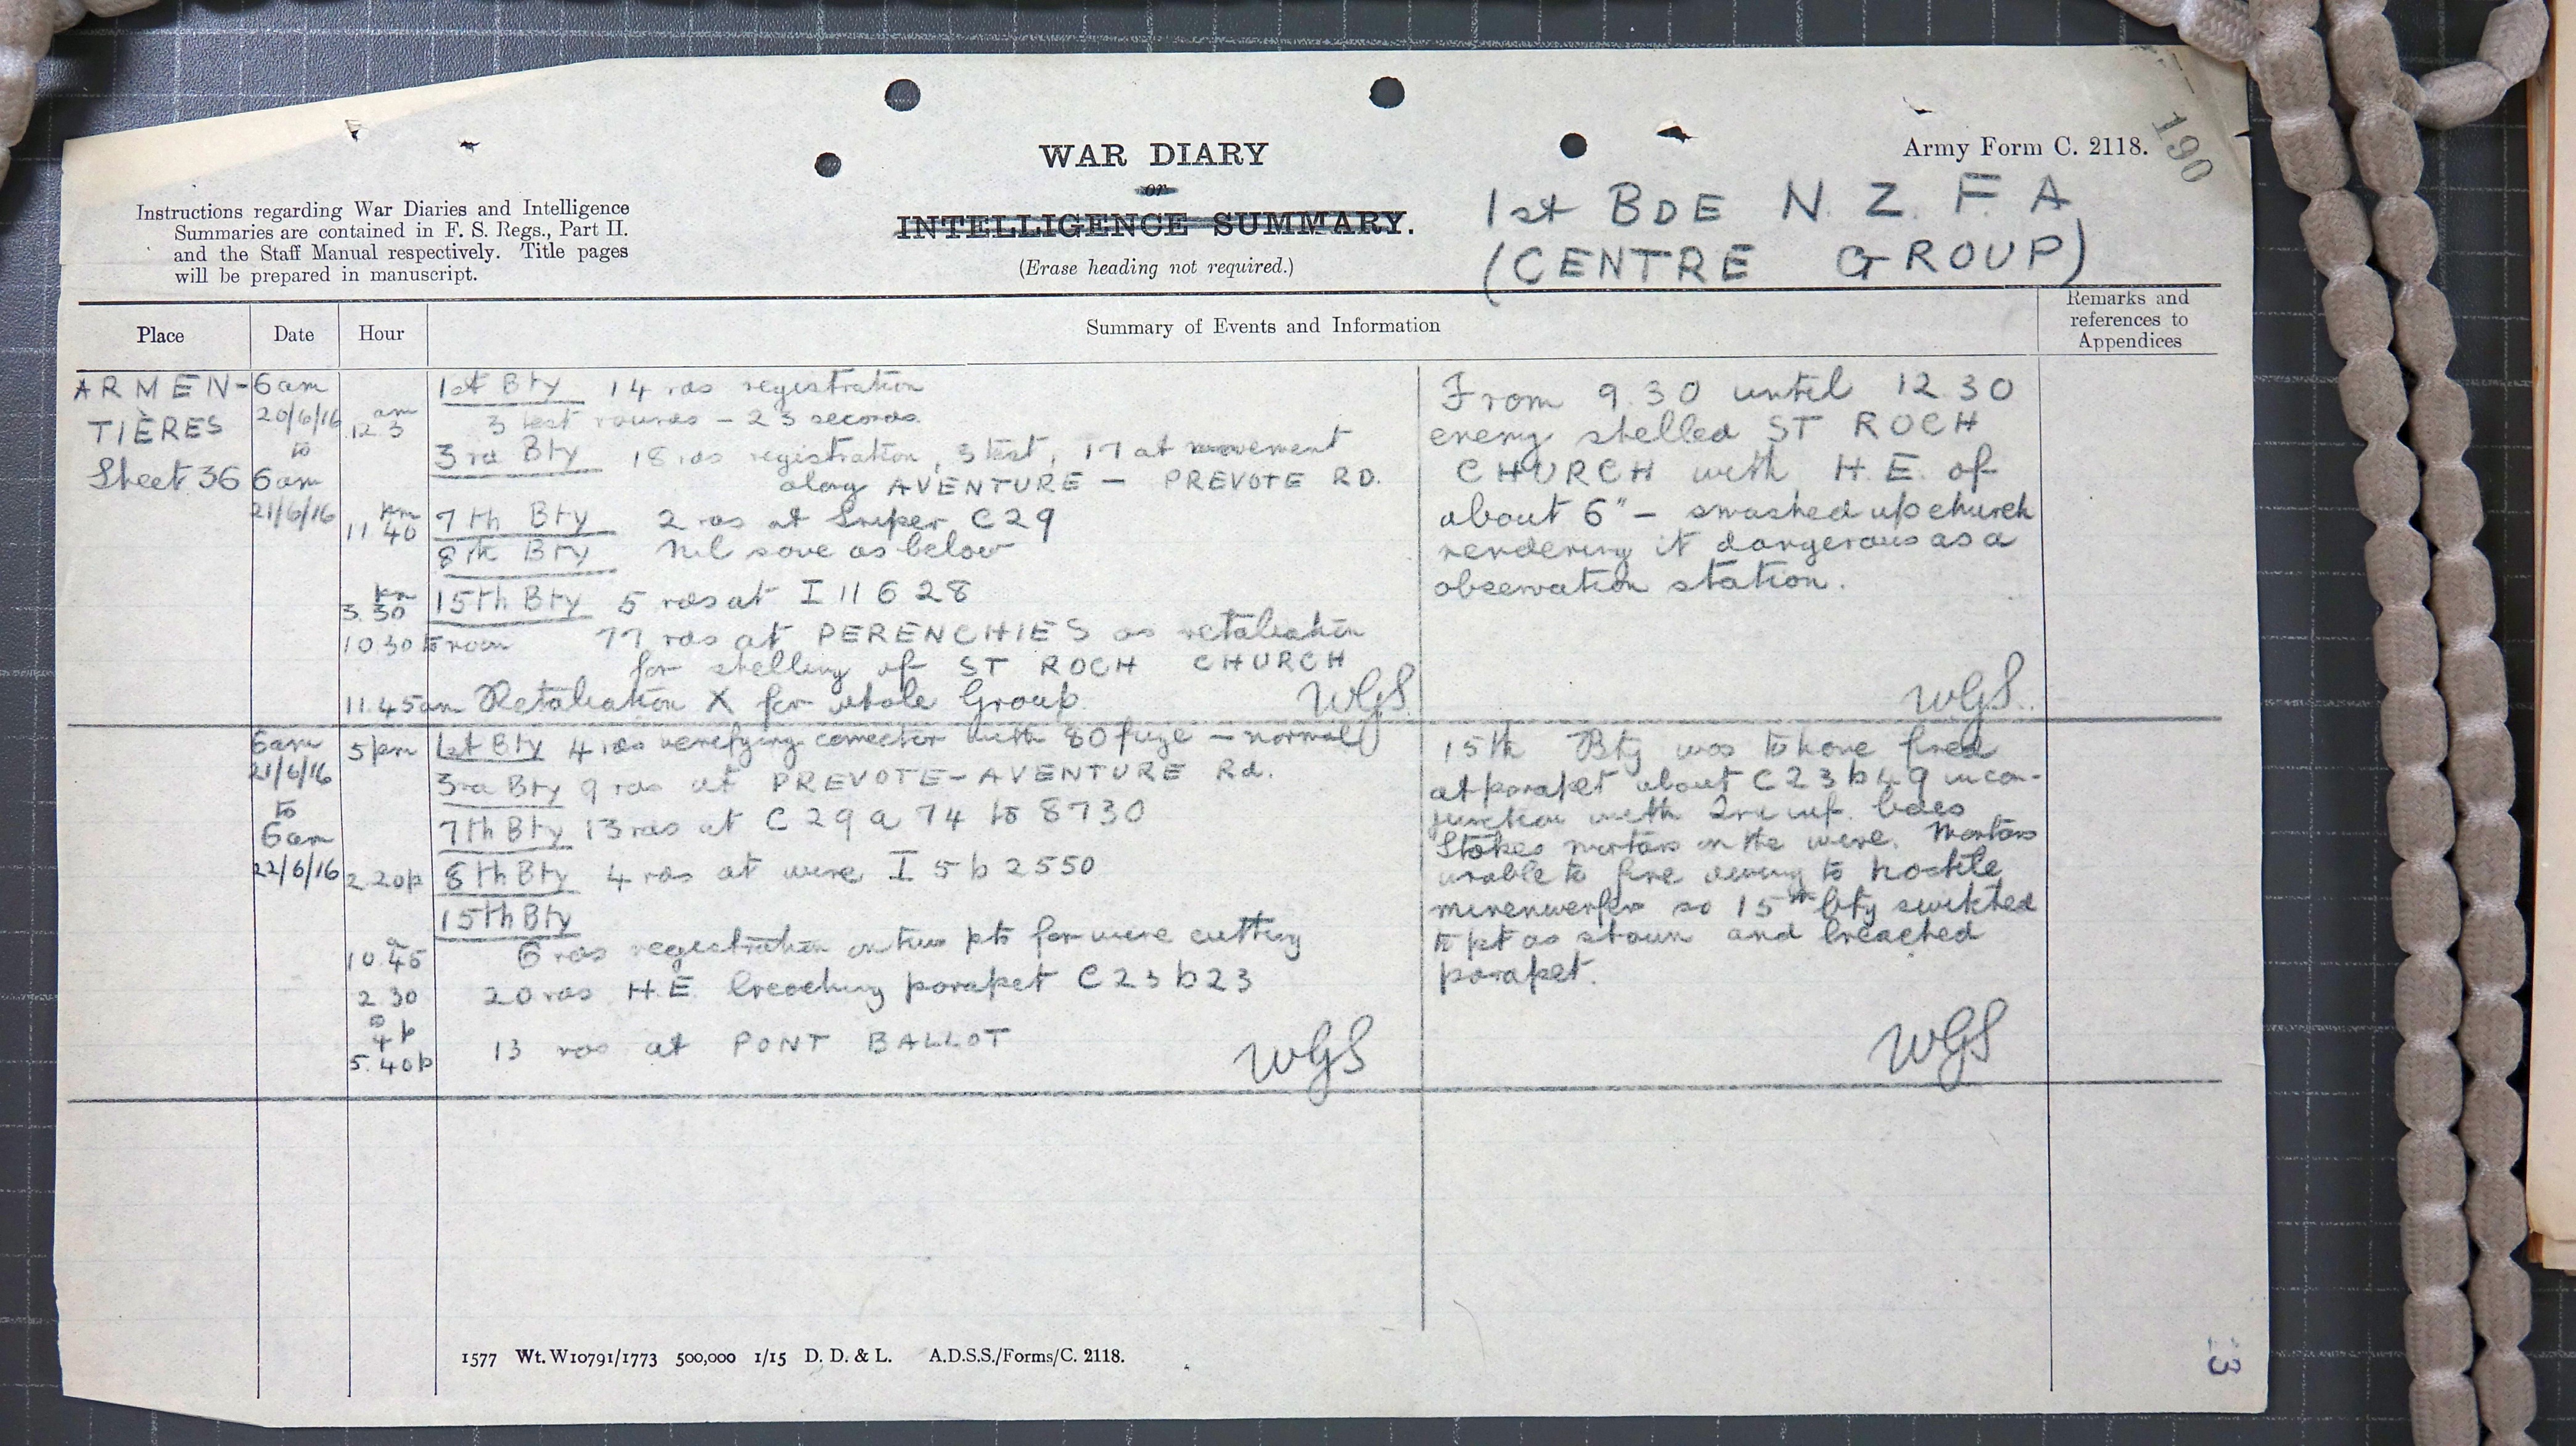 190
Army Form C. 2118.
WAR DIARY
or
INTELLIGENCE SUMMARY.
(Erase heading not required.)
Instructions regarding War Diaries and Intelligence
Summaries are contained in F. S. Regs., Part II.
and the Staff Manual respectively. Title pages
will be prepared in manuscript.
1st BDE N. Z. F. A
(CENTRE GROUP)
Place Date Hour Summary of Events and Information
Remarks and
references to
Appendices
ARMEN-
TIÈRES
Sheet 36
6am
20/6/16
to
6am
21/6/16
am
12.3
1st Bty 14 rds registration
3 test rounds - 23 seconds.
3rd Bty 18 rds registration, 3 test, 17 at movement
along AVENTURE - PREVOTE RD.
pm
11 40
7th Bty 2 rds at Sniper C29
8th Bty Nil save as below
pm
3.30
15th Bty 5 rds at I 11 6 28
10.30 to noon 77 rds at PERENCHIES as retaliation
for shelling of ST ROCH CHURCH
11.45am Retaliation X for whole Group.
WGS
From 9.30 until 12.30
enemy shelled ST ROCH
CHURCH with H.E. of
about 6" - smashed up church
rendering it dangerous as a
observation station.
WGS.
6am
21/6/16
to
6am
22/6/16
5pm 1st Bty 4 rds verefying corrector with 80 fuze - normal
3rd Bty 9 rds at PREVOTE-AVENTURE Rd.
7th Bty 13 rds at C 29 a 74 to 8730
2.20p 8th Bty 4 rds at wire I 5 b 2550
15th Bty
10.45 6 rds registration on two pts for wire cutting
2.30 20 rds H.E. breaching parapet C23 b23
4p
5.40p 13 rds at PONT BALLOT
WGS
15th Bty was to have fired
at parapet about C23 b 49 in con-
junction with 2nd inf. bdes
Stokes mortars on the wire. Mortars
unable to fire owing to hostile
minenwerfer so 15th bty switched
to pt as shown and breached
parapet.
WGS
1577 Wt. W10791/1773 500,000 1/15 D. D. & L. A.D.S.S./Forms/C. 2118.
3